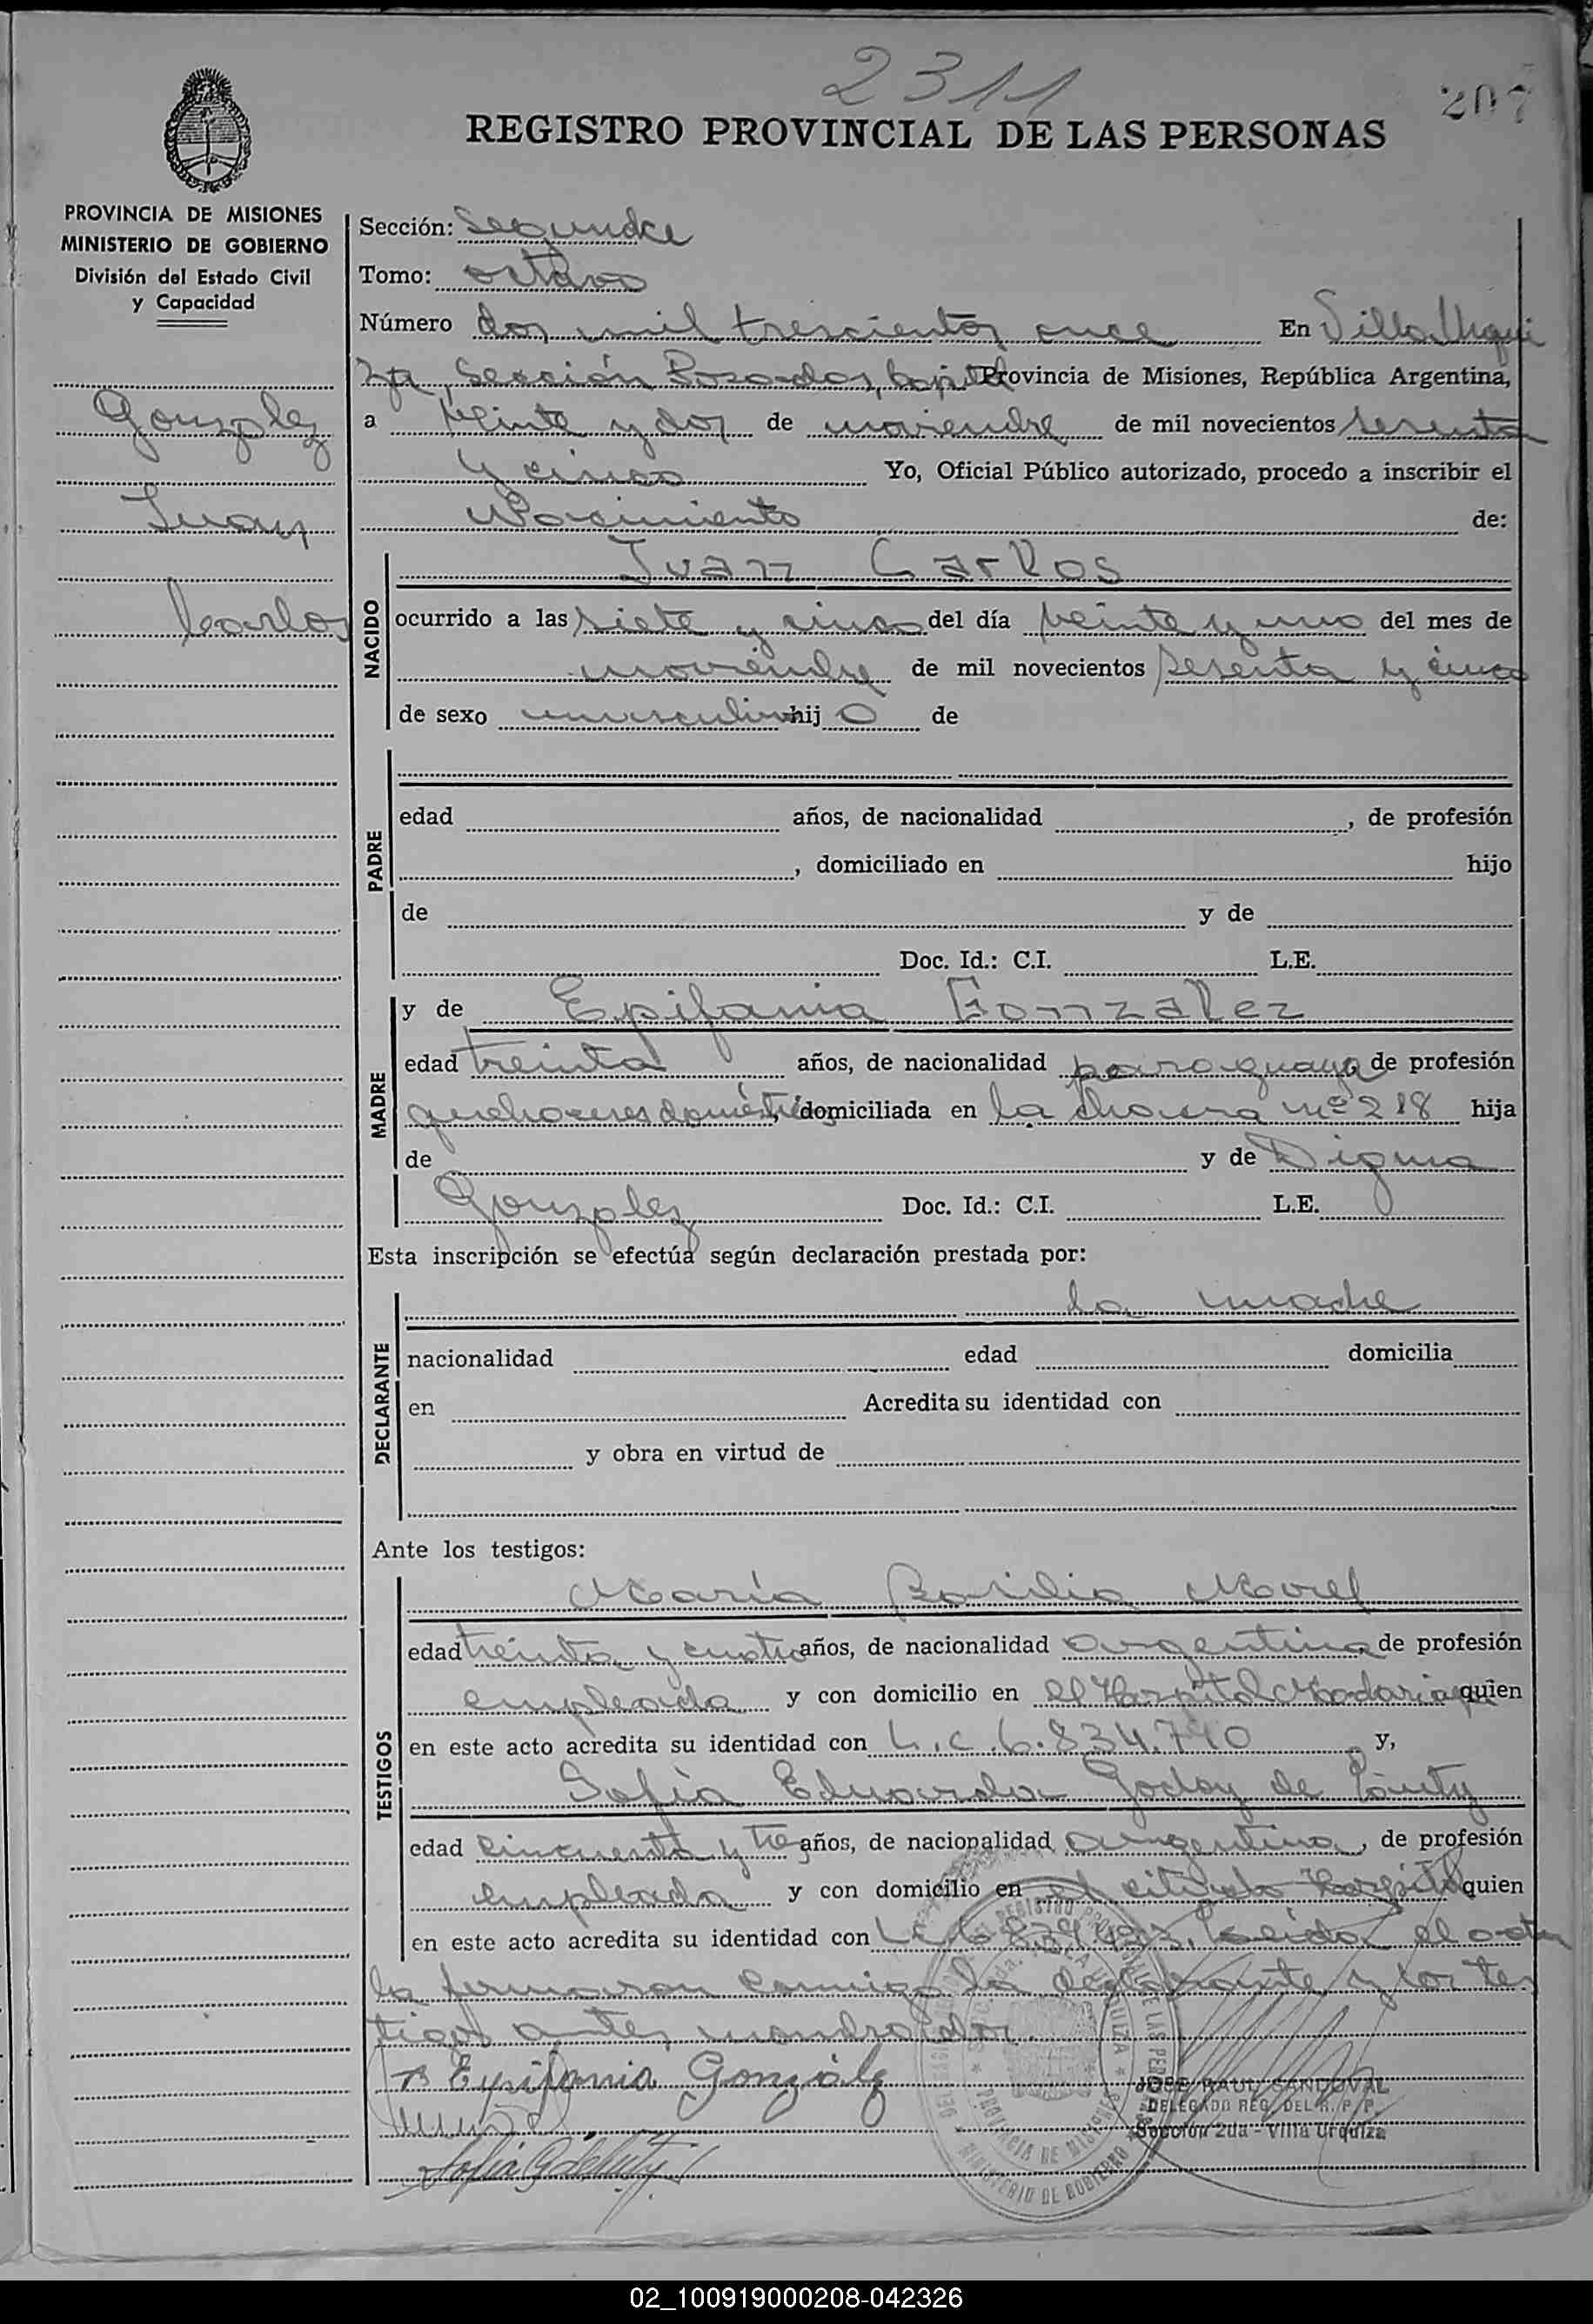 2311
207
REGISTRO PROVINCIAL DE LAS PERSONAS
PROVINCIA DE MISIONES
MINISTERIO DE GOBIERNO
División del Estado Civil
y Capacidad
Gonzalez
Juan
Carlos
Sección: Segunda
Tomo: octavo
Número dos mil trescientos once En Villa Urqui
za, Sección Posadas, Capital Provincia de Misiones, República Argentina,
a veinte y dos de noviembre de mil novecientos sesenta
y cinco Yo, Oficial Público autorizado, procedo a inscribir el
Nacimiento de:
NACIDO
Juan Carlos
ocurrido a las siete y cinco del día veinte y uno del mes de
noviembre de mil novecientos sesenta y cinco
de sexo masculino hijo de
PADRE
edad años, de nacionalidad , de profesión
, domiciliado en hijo
de y de
Doc. Id.: C.I. L.E.
MADRE
y de Epifania Gonzalez
edad treinta años, de nacionalidad paraguaya de profesión
quehaceres domésticos, domiciliada en la chacra nº 218 hija
de y de Digna
Gonzalez Doc. Id.: C.I. L.E.
Esta inscripción se efectúa según declaración prestada por:
DECLARANTE
la madre
nacionalidad edad domicilia
en Acredita su identidad con
y obra en virtud de
Ante los testigos:
TESTIGOS
María Basilia Morel
edad treinta y cuatro años, de nacionalidad argentina de profesión
empleada y con domicilio en el Hospital Madariaga quien
en este acto acredita su identidad con L.C. 6.834.740 y,
Sofía Eduarda Godoy de
edad cincuenta y tres años, de nacionalidad argentina, de profesión
empleada y con domicilio en el citado Hospital quien
en este acto acredita su identidad con L.C. Leida el acta
la firmaron conmigo la declarante y los tes
tigos antes nombrados.
Epifania González
Sofia G de
JOSE RAUL SANDOVAL
DELEGADO REG. DEL R. P. P.
Sección 2da - Villa Urquiza
PROVINCIA DE MISIONES
MINISTERIO DE GOBIERNO
02_100919000208-042326